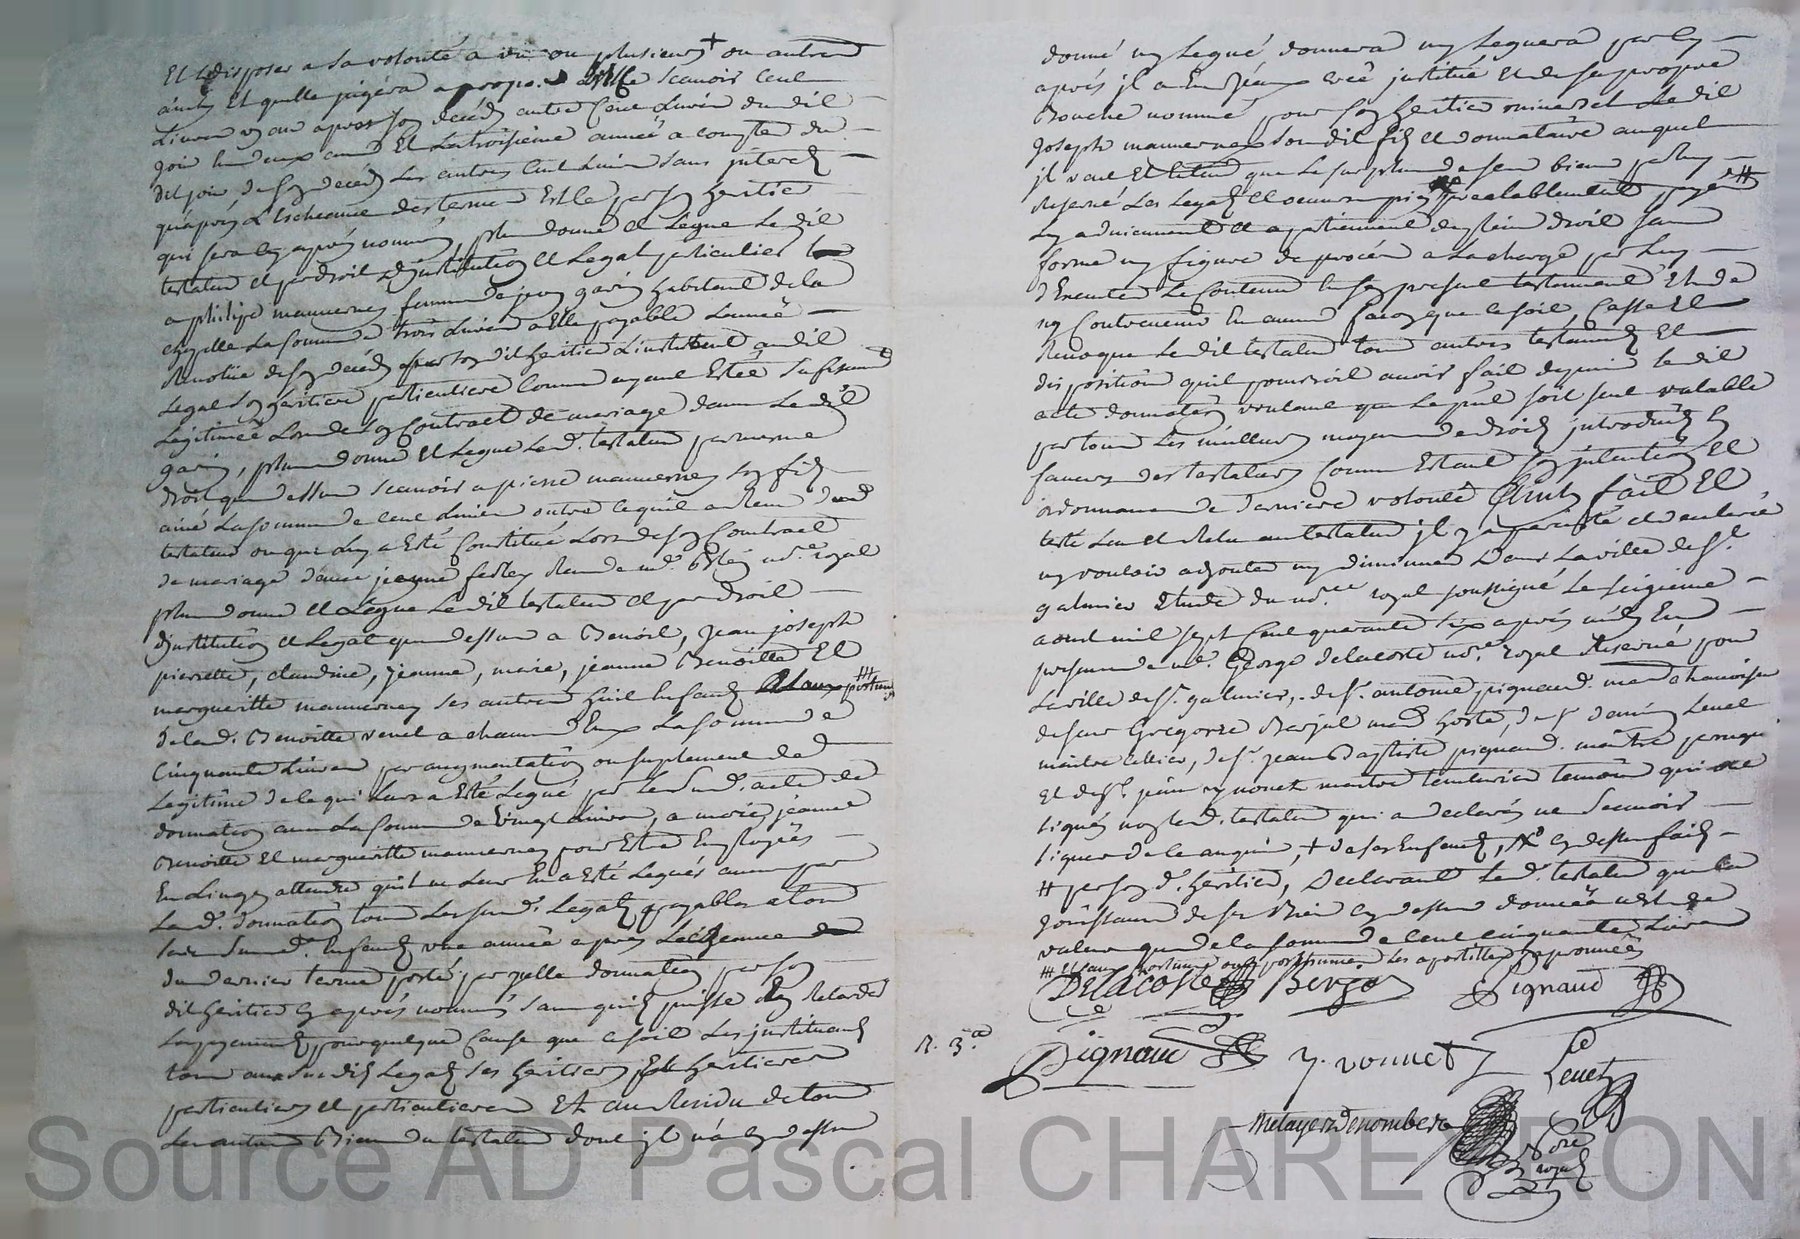 Et disposer a sa volonté a un ou plusieurs + ou autres
ainsy Et quelle jugéra a propo. Scavoir Cent
Livres un an apres son decéds autre Cent Livres du dit
jour en deux ans Et la troisieme année a compter du
dit jour de son decéds Les autres Cent Livres sans interest
qu'aprés L'Escheance des termes Et le par son heritier
qui sera cy aprés nommé, plus donne et Legue Le dit
testateur et par droit d'institution et Legat particulier
a philipe mauvernay femme a jean garin habitant de la
chapelle La somme de trois Livres a Elle payable L'année
Revolüe de son decéds par son dit heritier L'instituent audit
Legat son héritiere particuliere Comme ayant Estée suffisam.t
Légitimée Lors de son Contract de mariage dans Le dit
garin, plus donne et Legue Led. testateur par mesme
droit que dessus scavoir a pierre mauvernay son fils
ainé La somme de Cent Livres outre ce quil a Reçu dud
testateur ou que luy a Esté Constitué Lors de son Contract
de mariage d'avec jeanne ferley Reçu de me. not.re royal
plus donne et Legue Le dit testateur et par droit
d'institution et Legat que dessus a Benoit, Jean joseph
pierrette, claudine, jeanne, marie, jeanne Benoitte Et
margueritte mauvernay ses autres huit Enfands
de lad. Benoitte venet a chacun d'Eux La somme de
Cinquante Livres par augmentation ou suplement de
Legitime de ce qui Leur a Esté Legué par Le sud. acte de
donnation avec La somme de vingt Livres, a marie, jeanne
Benoitte Et marguerite mauvernay pour Estre Employées
En Linges attendu quil ne Leur En a Esté Legués aucun par
La d. donnation tous Les sud. Legats payables a tous
ses dits sud. Enfands une année aprés L'echeance
du dernier terme porté par ycelle donnation par son
dit heritier cy aprés nommé sans quils puisse En Retarder
Le payement, pour quelque Cause que ce soit Les instituant
tous aux susdits Legats ses heritiers Et héritieres
particuliers et particulieres Et au Residu de tous
Les autres Biens du testateur dont il n'a cy dessus
donné ny Legué donnera ny Leguera par cy
aprés il a En Jceux creé institué Et de sa propre
Bouche nommé pour son heritier universel Le dit
Joseph mauvernay son dit fils et donnataire auquel
il veut Et Entend que Le surplus de ses biens par luy
Reservé Les Legats et oeuvres pies préalablement payés #
luy adviennent et apartiennent de plein droit sans
forme ny figure de procés a la charge par luy
d'Executer Le Contenu En son present testament Et de
ny Contrevenir En aucune façon que ce soit, Casse Et
Revoque Le dit testateur tous autres testaments Et
dispositions quil pourroit avoir fait depuis le dit
acte donnation voulant que Le pnt soit seul valable
par tous Les meilleurs moyens de droits introduits En
faveur des testateurs Comme Estant son intention Et
ordonnance de derniere volonté Ainsy fait Et
testé Leu et Relu au testateur il y a persisté et declaré
ny vouloir adjouter ny diminuer Dans La ville de St.
galmier Etude du no.re royal soussigné Le sixieme
aoust mil sept Cent quarante six aprés midy En
presence de me. George delacoste no.re royal Reservé pour
La ville de St. galmier, de sr. antoine pignaud md chamoiseur
de sieur Gregoire Berjat md hoste, de sr damien Leuet
maitre sellier, de sr. jean Baptiste pignaud. maître perruqe
Et de sr. jean yvonet maitre teinturier temoins qui ont
signés non led. testateur qui a declarés ne Scavoir
signer de ce enquis, + de ses Enfands, cy dessus faits
# par son d. heritier, Declarant Led. testateur que la
jouissance de ses Biens cy dessus donnée n'est de
valeur que de la somme de Cent cinquante Livres
### Les apostilles approuvées
Delacoste Berja Pignaud
R. 3.e
Pignaud y. vonnet Leuet
Metayer Denombere
No.re
royal
Source AD Pascal CHARETIRON